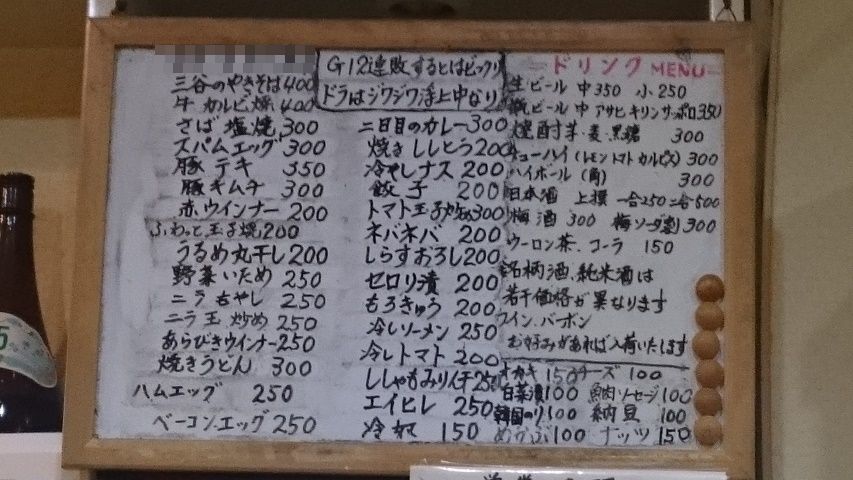 三谷のやきそば400
牛カルビ焼400
さば塩焼300
スパムエッグ300
豚テキ 350
豚キムチ 300
赤ウインナー 200
ふわっと玉子焼200
うるめ丸干し200
野菜いため 250
ニラもやし 250
ニラ玉炒め250
あらびきウインナー250
焼きうどん 300
ハムエッグ 250
ベーコンエッグ250
G12連敗するとはビックリ
ドラはジワジワ浮上中なり
二日目のカレー300
焼きししとう200
冷やしナス 200
餃子 200
トマト玉子炒め300
ネバネバ 200
しらすおろし200
セロリ漬 200
もろきゅう 200
冷しソーメン 250
冷しトマト 200
ししゃもみりん干250
エイヒレ 250
冷奴 150
ードリンクMENUー
生ビール 中350 小250
瓶ビール 中 アサヒキリンサッポロ350
焼酎芋・麦・黒糖 300
チューハイ(レモントマトカルピス)300
ハイボール(角) 300
日本酒 上撰 一合250二合500
梅酒 300 梅ソーダ割300
ウーロン茶、コーラ 150
銘柄酒、純米酒は
若干価格が異なります
ワイン、バーボン
お好みがあれば入荷いたします
オカキ 150 チーズ 100
白菜漬100 魚肉ソーセージ100
韓国のり100 納豆 100
めかぶ100 ナッツ 150